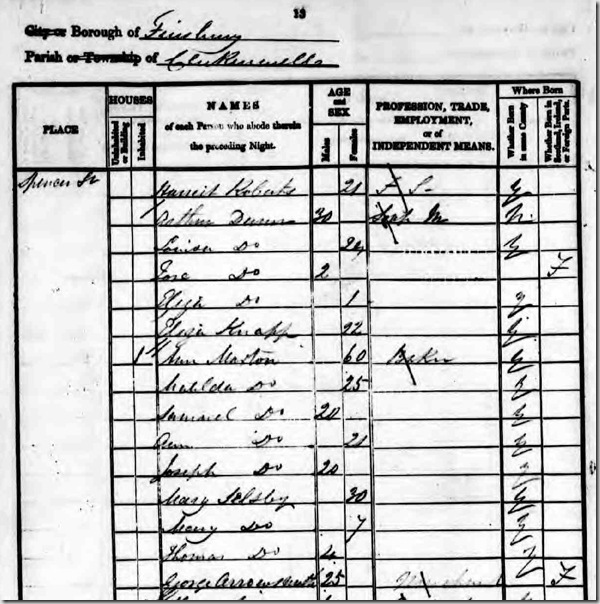 13
City or Borough of Finsbury
Parish or Township of Clerkenwell
PLACE
HOUSES
Uninhabited or Building
Inhabited
NAMES of each Person who abode therein the preceding Night.
AGE and SEX
Males
Females
PROFESSION, TRADE, EMPLOYMENT, or of INDEPENDENT MEANS.
Where Born
Whether Born in same County
Whether Born in Scotland, Ireland, or Foreign Parts.
Spencer St Harriet Roberts 21 F S Y
Arthur 30 N
Louisa Do Y
Do 2 F
Eliza Do 1 Y
Eliza Knapp Y
1 Ann Morton 60 Baker Y
Matilda Do 25 Y
Samuel Do 20 Y
Ann Do Y
Joseph Do 20 Y
Mary Selsby 30 Y
Mary Do 7 Y
Thomas Do 4 Y
George Arrowsmith 25 F